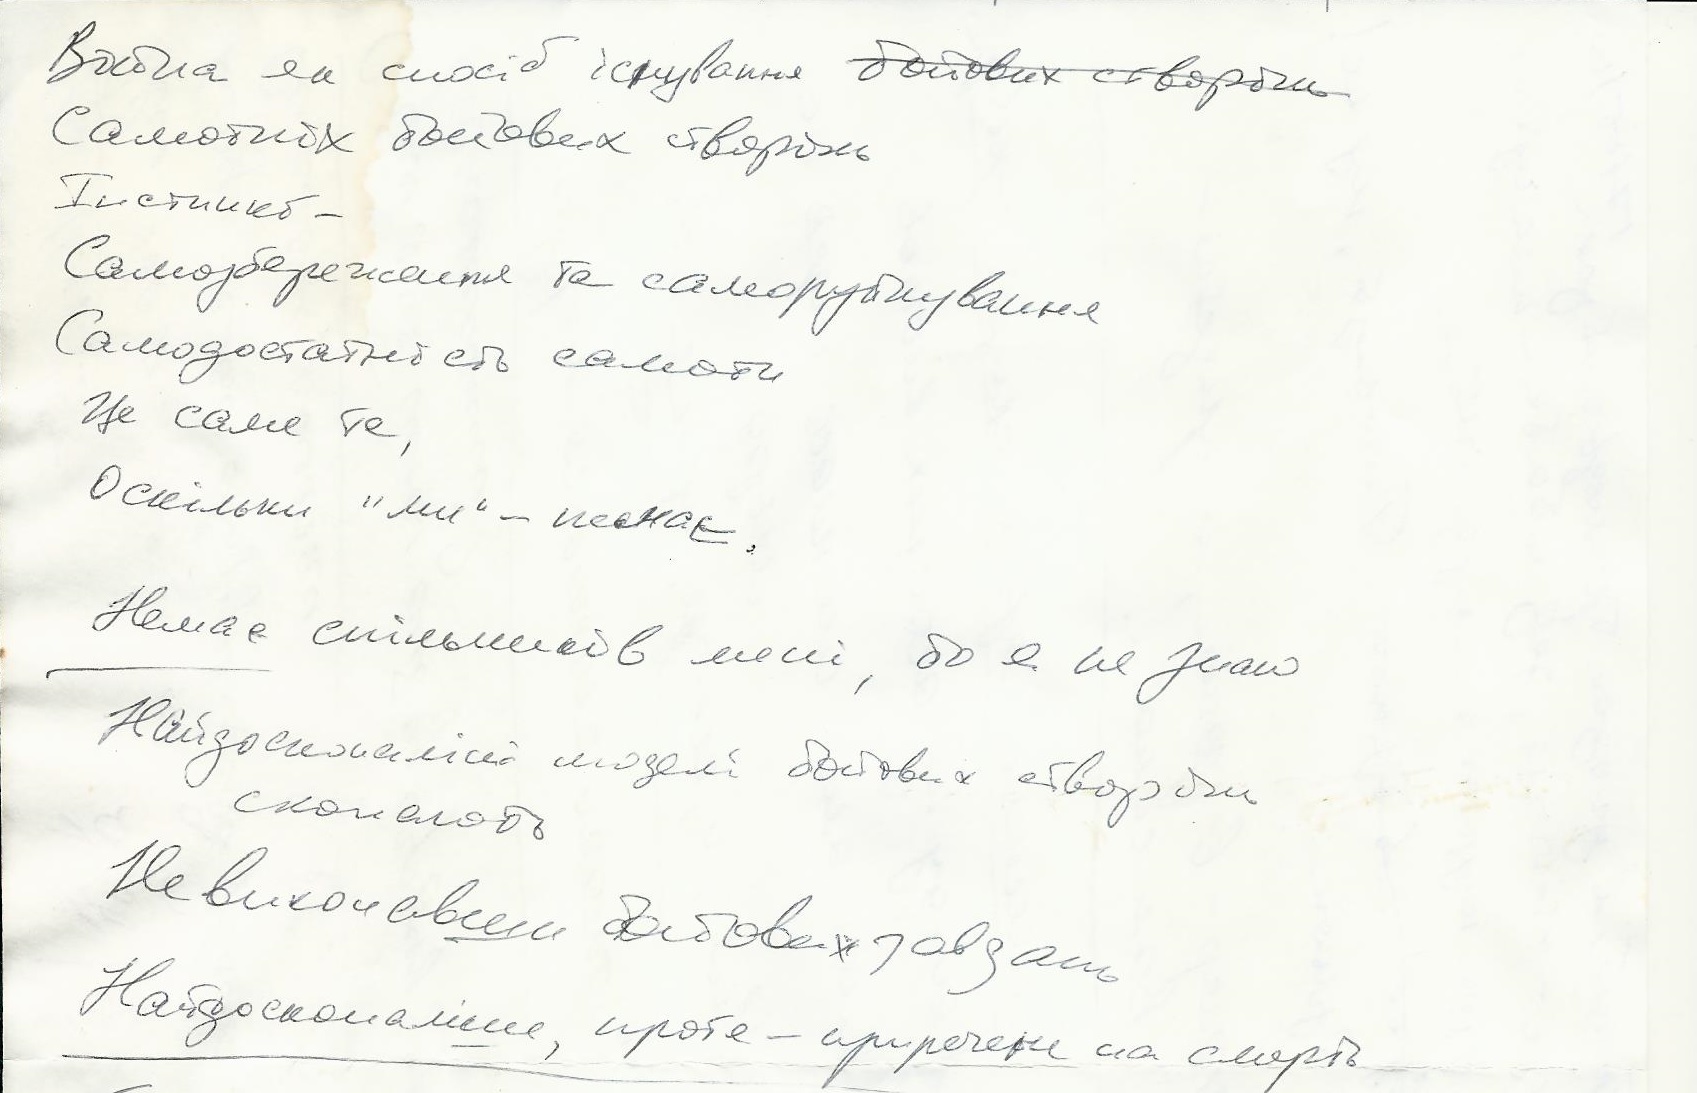 Війна як спосіб існування бойових створінь
Самотніх бойових створінь
Інстинкт –
Самозбереження та саморуйнування
Самодостатність самоти
Це саме те,
Оскільки "ми" – немає.
Немає спільників мені, бо я не знаю
Найдосконаліші моделі бойових створінь
сконають
Не виконавши бойових завдань
Найдосконаліші, проте – приречені на смерть